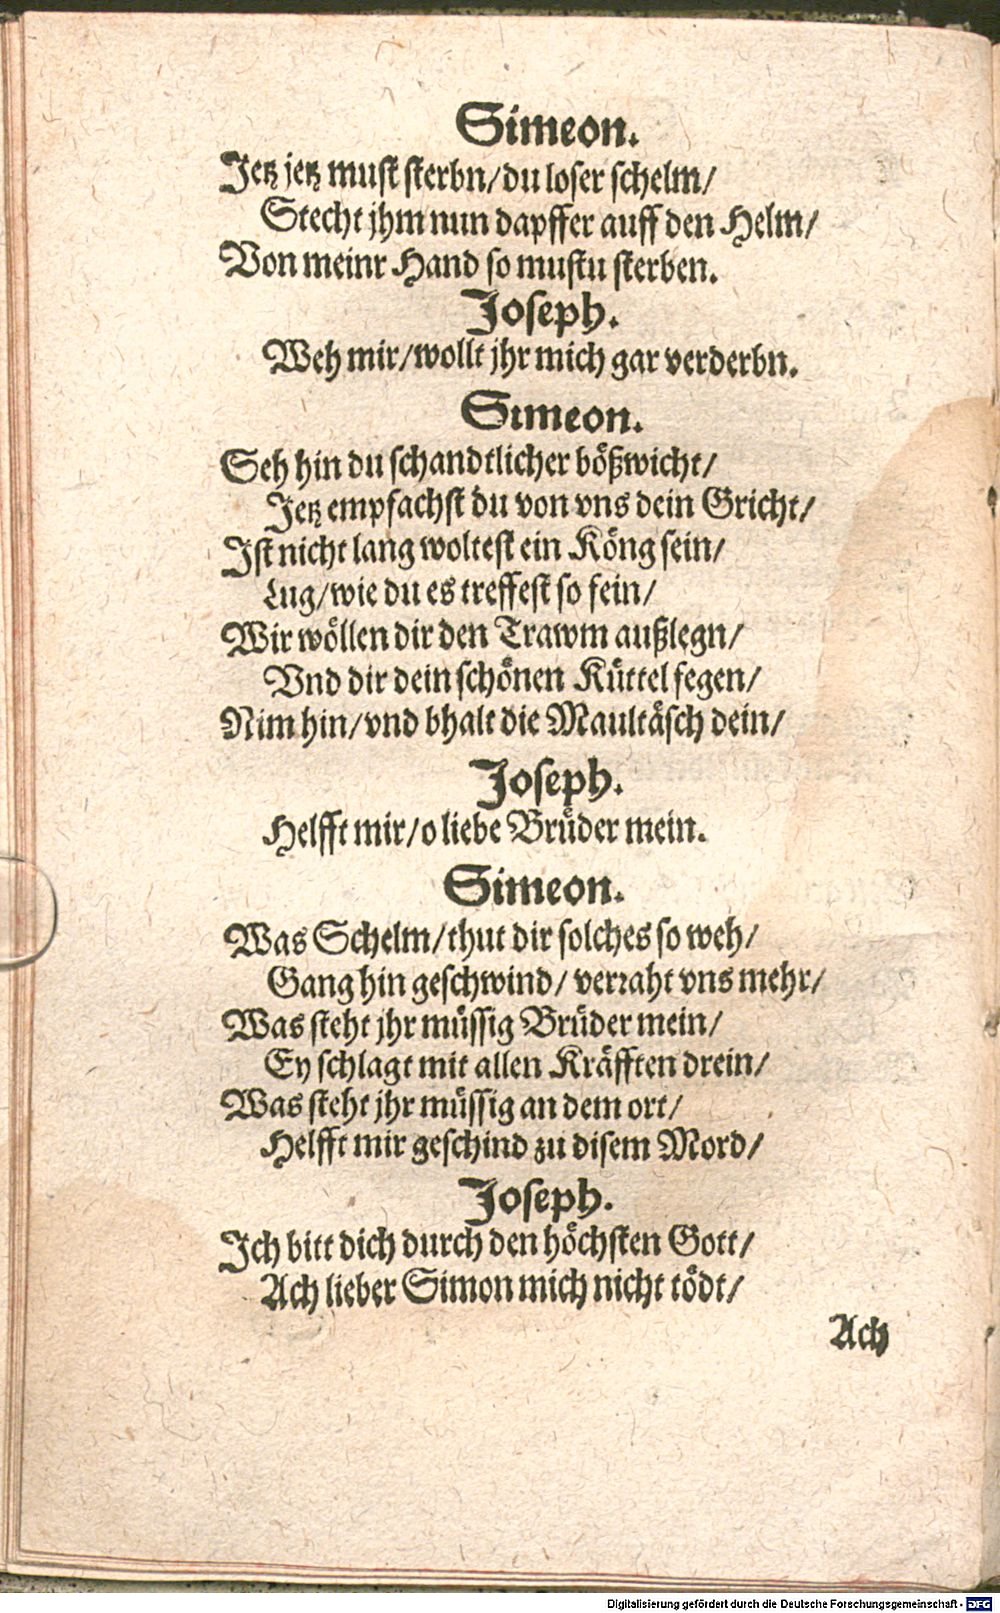 Simeon.
Jetz jetz must sterbn/ du loser schelm/
Stecht jhm nun dapffer auff den Helm/
Von meinr Hand so mustu sterben.
Joseph.
Weh mir/ wollt jhr mich gar verderbn.
Simeon.
Seh hin du schandtlicher bößwicht/
Jetz empfachst du von vns dein Gricht/
Ist nicht lang woltest ein Köng sein/
Lug/ wie du es treffest so fein/
Wir wöllen dir den Trawm außlegn/
Vnd dir dein schönen Küttel fegen/
Nim hin/ vnd bhalt die Maultäsch dein/
Joseph.
Helfft mir/ o liebe Brüder mein.
Simeon.
Was Schelm/ thut dir solches so weh/
Gang hin geschwind/ verraht vns mehr/
Was steht jhr müssig Brüder mein/
Ey schlagt mit allen Kräfften drein/
Was steht jhr müssig an dem ort/
Helfft mir geschind zu disem Mord/
Joseph.
Ich bitt dich durch den höchsten Gott/
Ach lieber Simon mich nicht tödt/
Ach
Digitalisierung gefördert durch die Deutsche Forschungsgemeinschaft - DFG